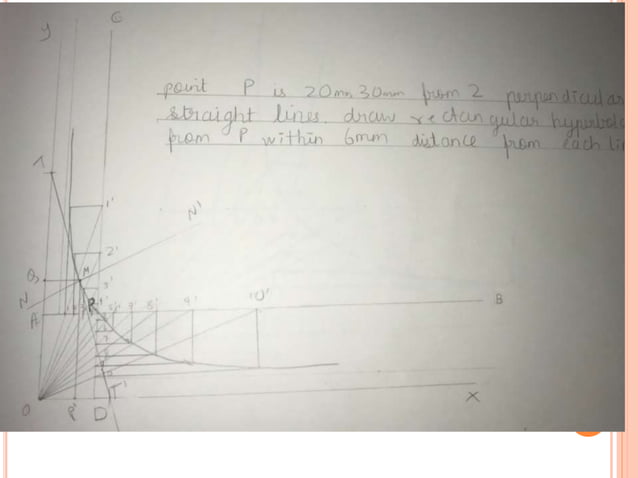 y
C
point P is 20mm, 30mm from 2 perpendicular
straight lines. draw rectangular hyperbola
from P within 6mm distance from each li
T
1'
N'
2'
Q
M
3'
N
P
4'
7'
8'
9'
10'
B
A
T'
O
P'
D
X